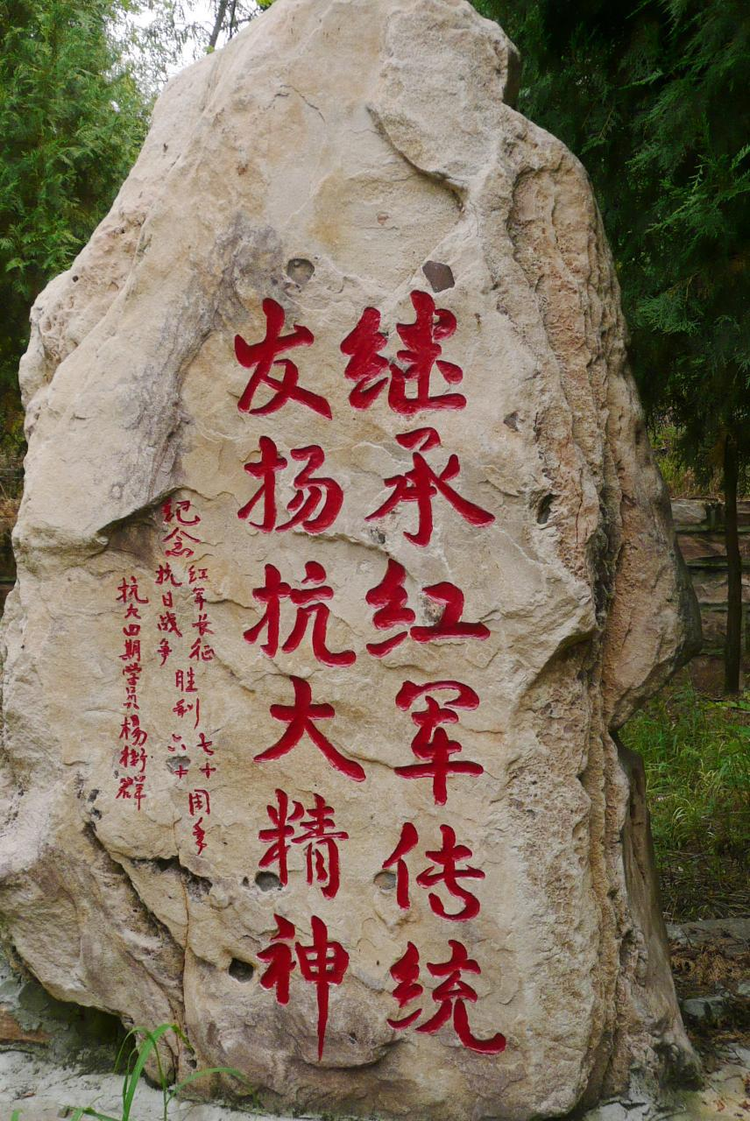 继承红军传统
发扬抗大精神
纪念
红军长征
抗日战争
胜利
七十
六十
周年
抗大四期学员楊